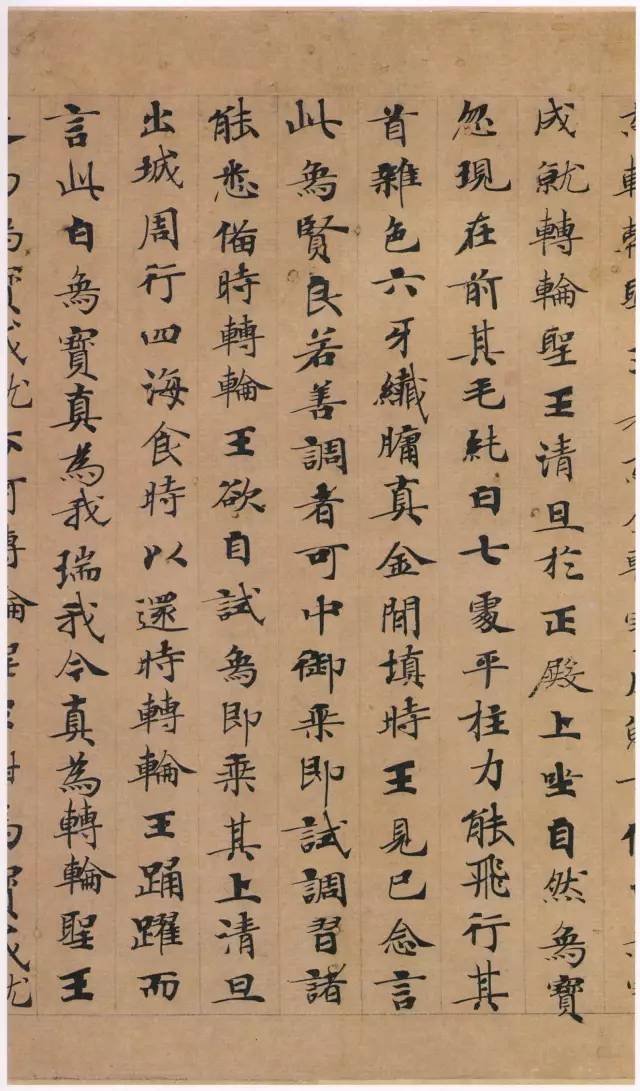 成就轉輪聖王清旦於正殿上坐自然象寶
忽現在前其毛純白七處平柱力能飛行其
首雜色六牙纖𦟛真金間填時王見已念言
此象賢良若善調者可中御乘即試調習諸
能悉俻時轉輪王欲自試象即乘其上清旦
出城周行四海食時以還時轉輪王踊躍而
言此白象寶真為我瑞我今真為轉輪聖王
象寶成就云何轉輪聖王紺馬寶成就